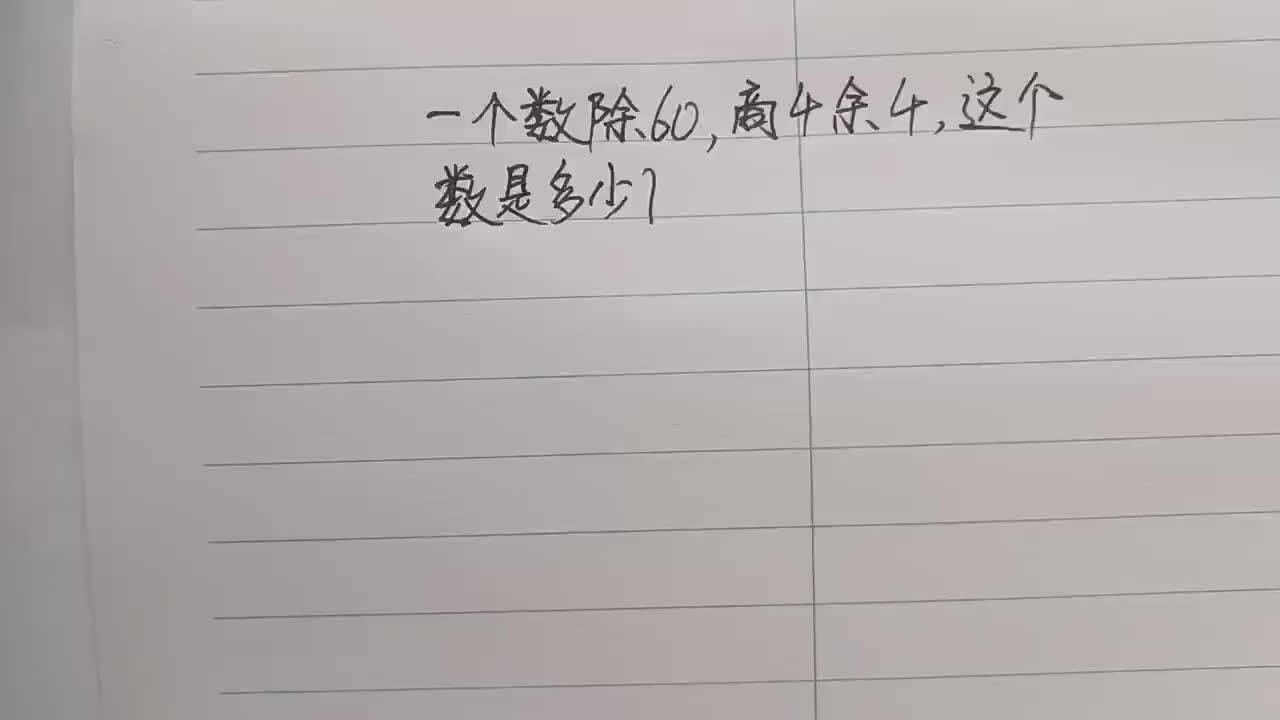 一个数除60,商4余4,这个
数是多少?